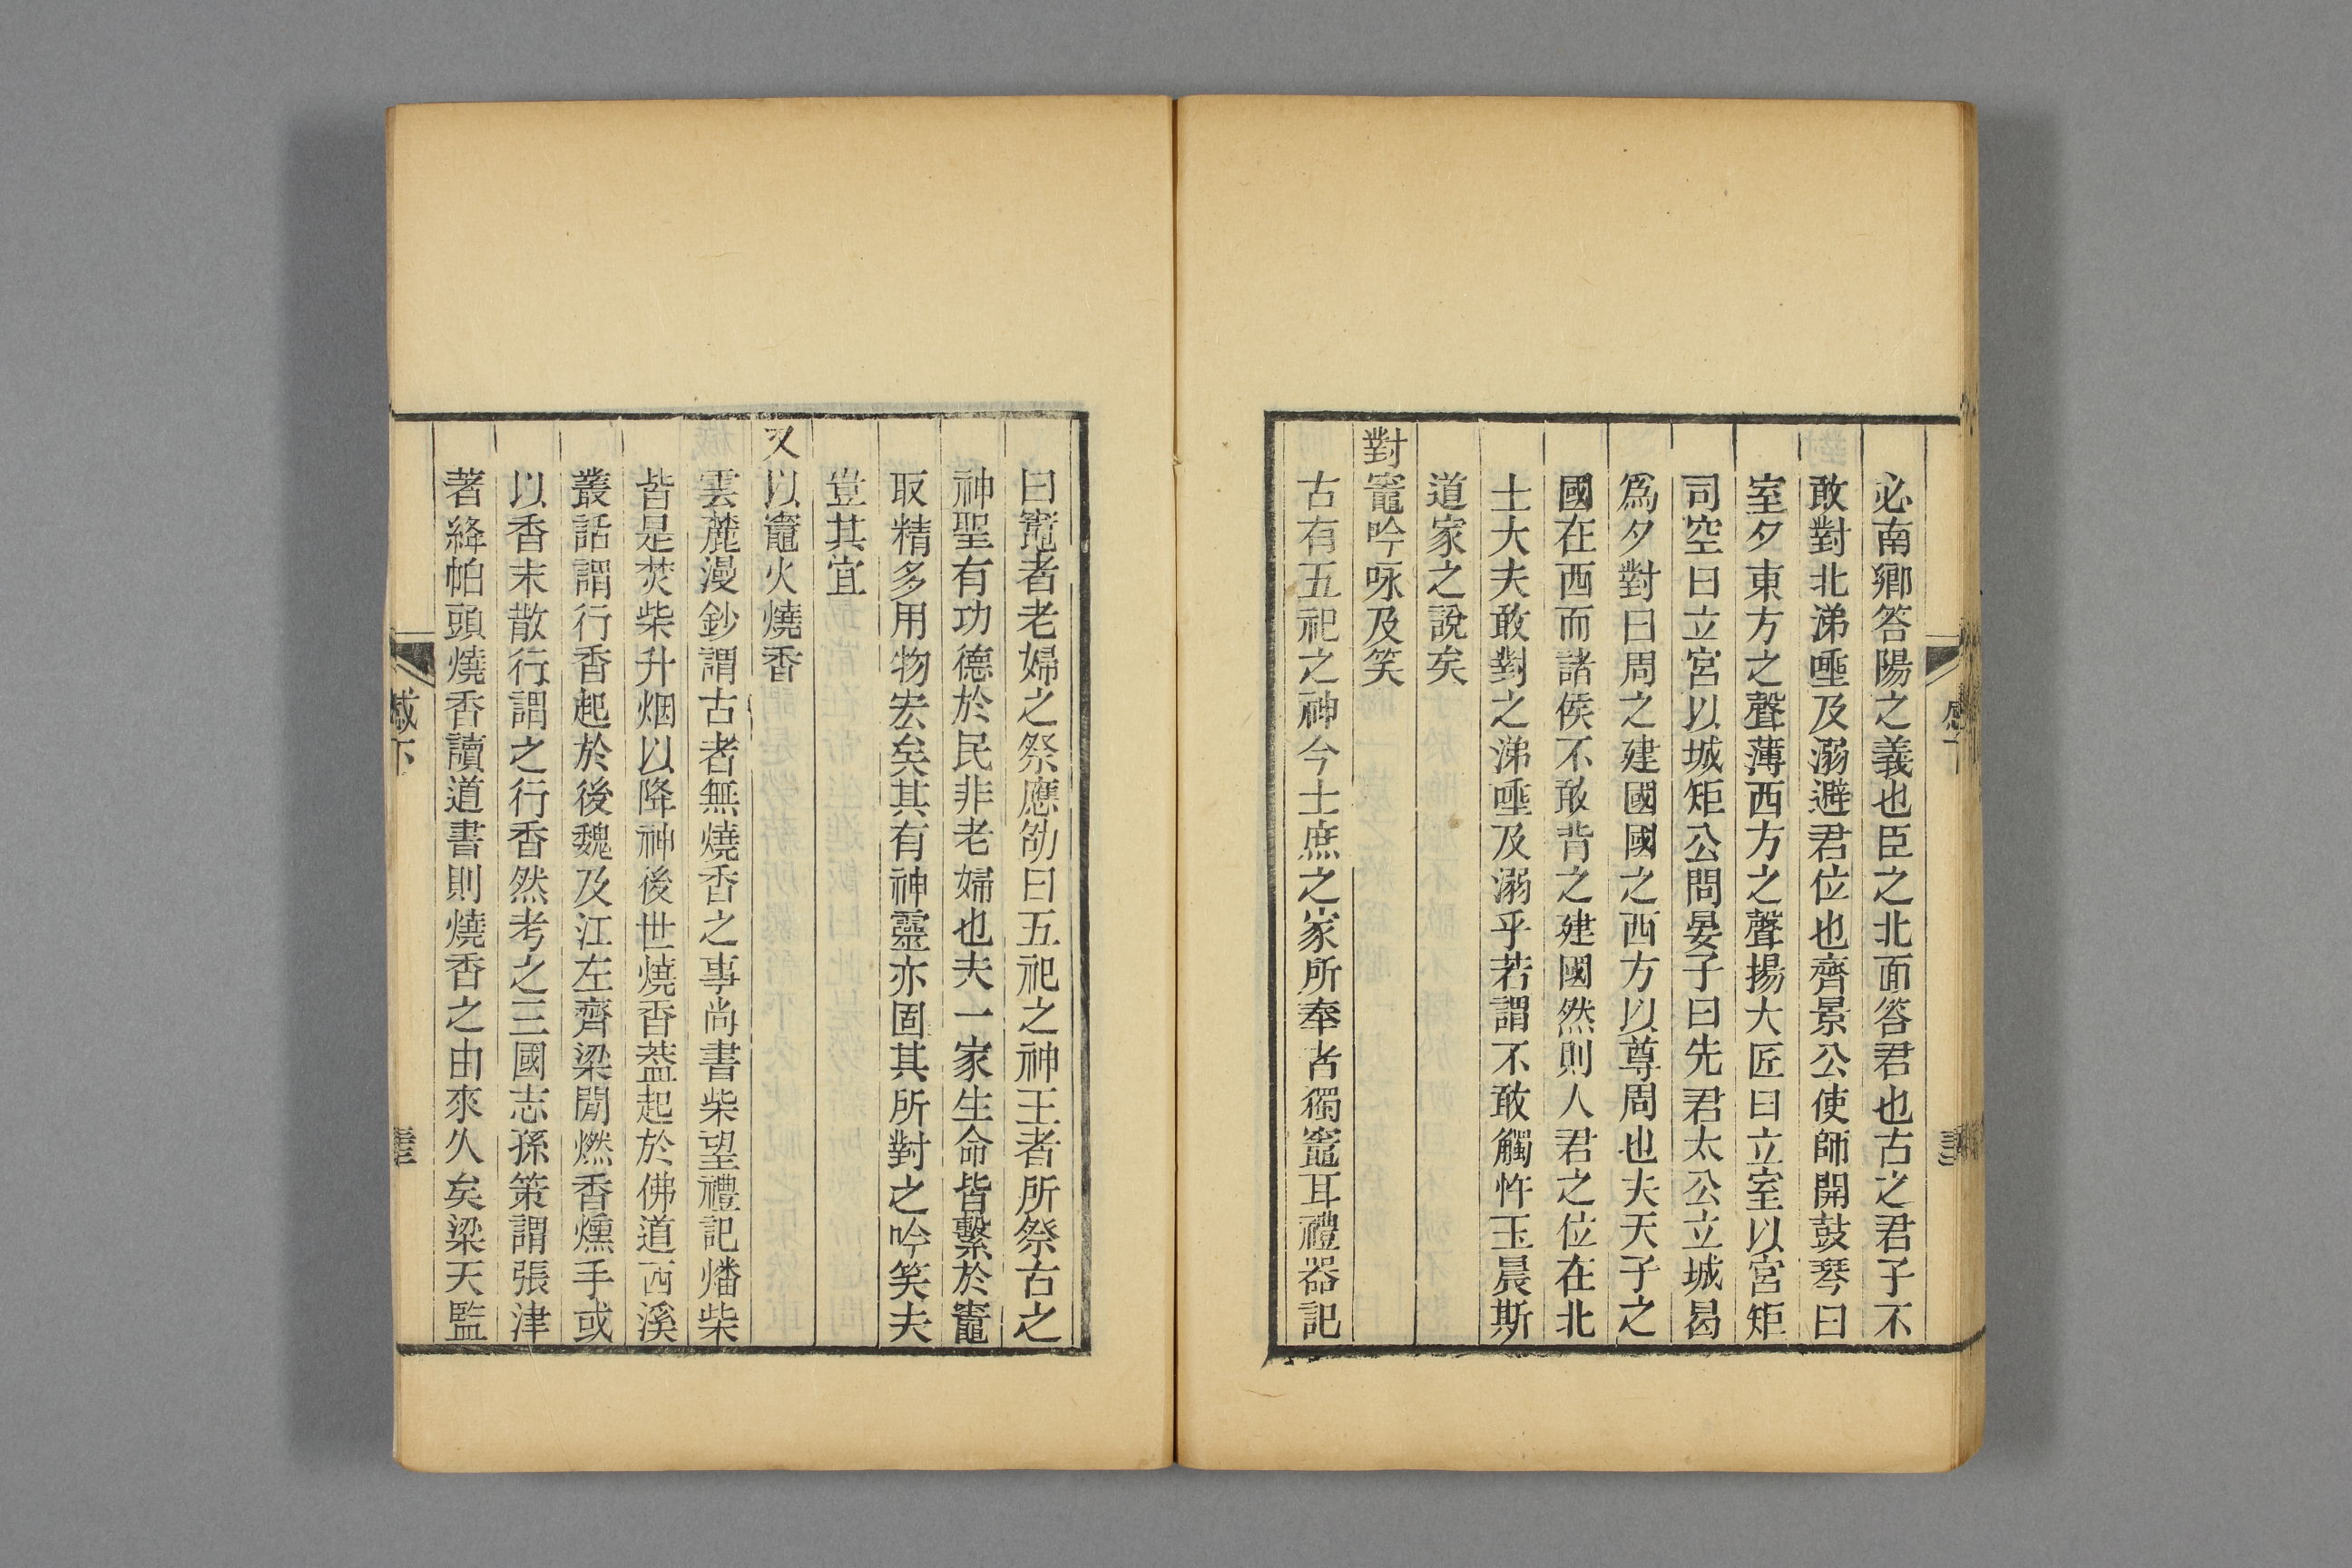 必南鄉答陽之義也臣之北面答君也古之君子不
敢對北涕唾及溺避君位也齊景公使師開鼓琴曰
室夕東方之聲薄西方之聲揚大匠曰立室以宮矩
司空曰立宮以城矩公問晏子曰先君太公立城曷
爲夕對曰周之建國國之西方以尊周也夫天子之
國在西而諸侯不敢背之建國然則人君之位在北
士大夫敢對之涕唾及溺乎若謂不敢觸忤玉晨斯
道家之說矣
對竈吟咏及笑
古有五祀之神今士庶之家所奉者獨竈耳禮器記
曰竈者老婦之祭應劭曰五祀之神王者所祭古之
神聖有功德於民非老婦也夫一家生命皆繫於竈
取精多用物宏矣其有神靈亦固其所對之吟笑夫
豈其宜
又以竈火燒香
雲麓漫鈔謂古者無燒香之事尚書柴望禮記燔柴
皆是焚柴升烟以降神後世燒香葢起於佛道西溪
叢話謂行香起於後魏及江左齊梁閒燃香燻手或
以香末散行謂之行香然考之三國志孫策謂張津
著絳帕頭燒香讀道書則燒香之由來久矣梁天監
感下